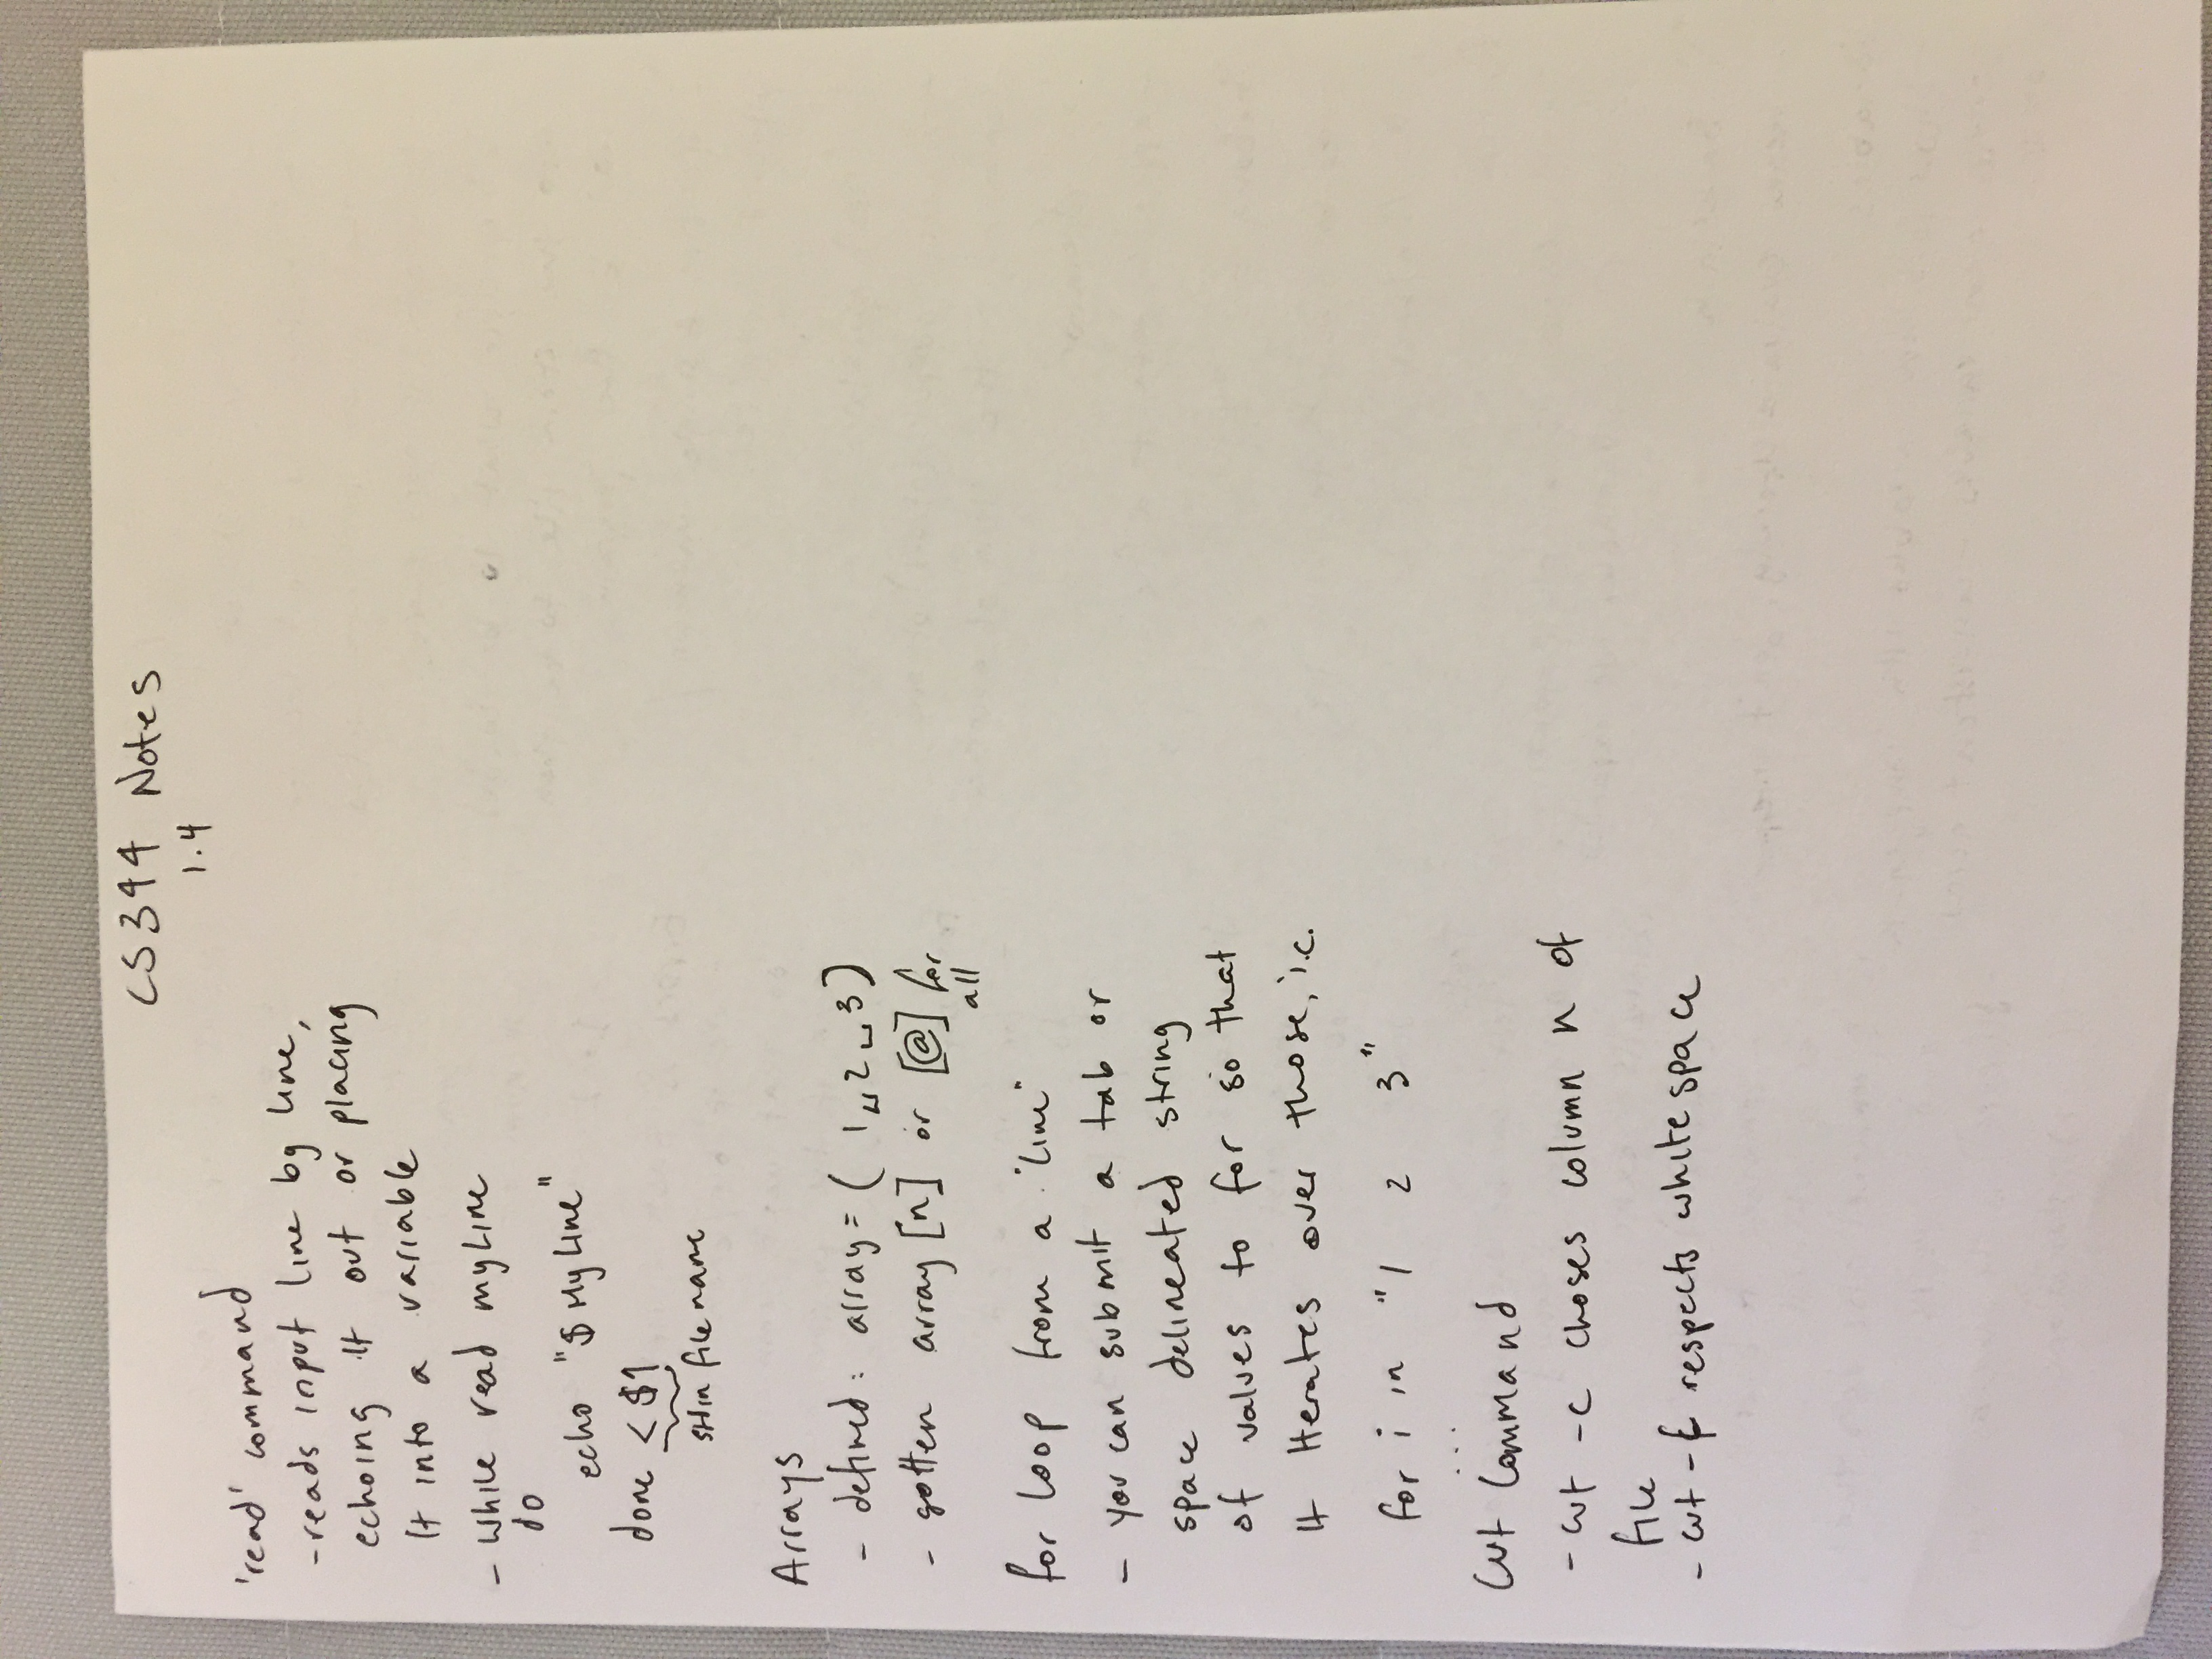 CS344 Notes
1.4
'read' command
- reads input line by line,
echoing it out or placing
it into a variable
- while read myLine
do
echo "$MyLine"
done < $1
stdin filename
Arrays
- defined: array = ( 1␣2␣3)
- gotten array[n] or [@] for
all
for loop from a "line"
- you can submit a tab or
space delineated string
of values to for so that
it iterates over those, i.e.
for i in "1 2 3"
...
Cut Command
- cut -c choses column n of
file
- cut -f respects whitespace